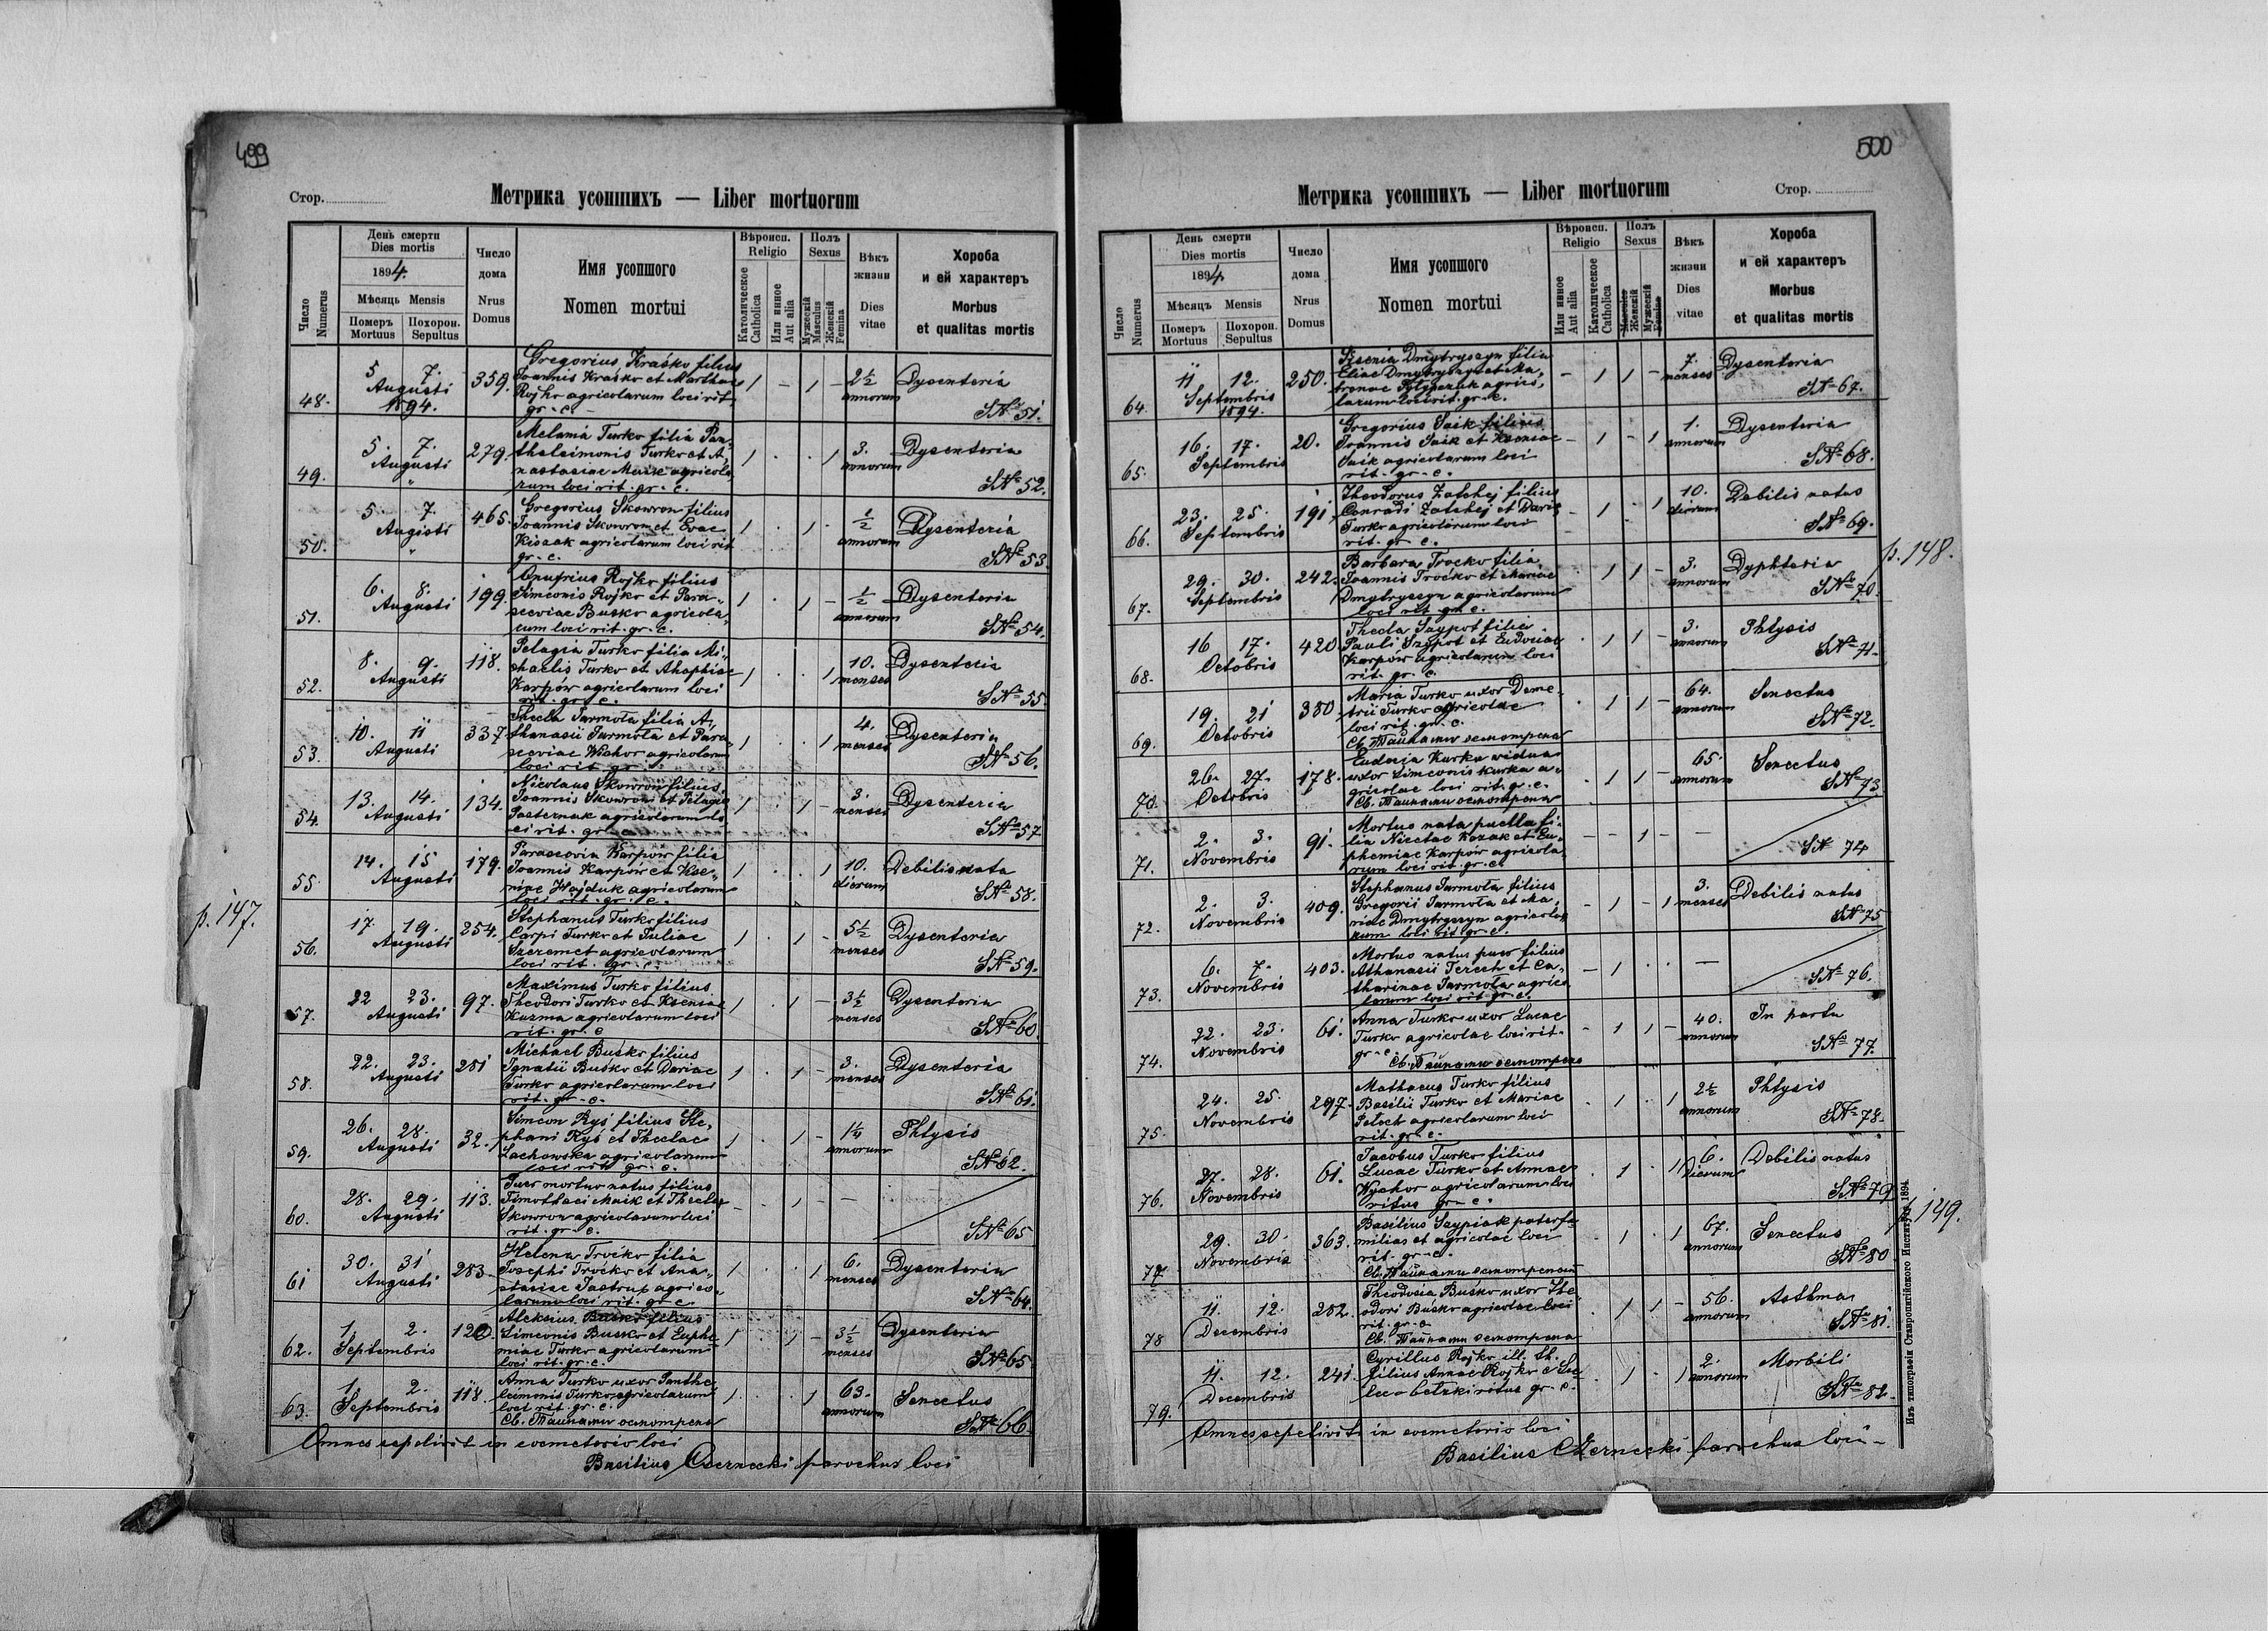 499
Стор.
Метрика усопшихъ — Liber mortuorum
Число Numerus
День смерти
Dies mortis
1894.
Мѣсяць Mensis
Померъ Mortuus
Похорон. Sepultus
Число дома
Nrus Domus
Имя усопшого
Nomen mortui
Вѣроисп.
Religio
Католическое Catholica
Или инное Aut alia
Полъ
Sexus
Мужескій Masculus
Женскій Femina
Вѣкъ жизни
Dies vitae
Хороба
и ей характеръ
Morbus
et qualitas mortis
48. 5 7. 359. Gregorius Kraśko filius 1 – 1 – 2½ Dysenteria
Augusti Joannis Kraśko et Marthae annorum
1894. Rojko agricolarum loci rit.
gr. c. SNo 51.
49. 5. 7. 279. Melania Turko filia Pan- 1 . . 1 3. Dysenteria
Augusti thaleimonis Turko et A- annorum
" nastasiae Muik agricola-
rum loci rit. gr. c. SNo 52.
50. 5. 7. 465. Gregorius Skowron filius 1 . 1 . ½ Dysenteria
Augusti Joannis Skowron et Evae annorum
" Kiszak agricolarum loci rit
gr. c. SNo 53
51. 6. 8. 199 Onufrius Rojko filius 1 . 1 – ½ Dysenteria
Augusti Simeonis Rojko et Para- annorum
sceviae Busko agricola-
rum loci rit. gr. c. SNo 54.
52. 8. 9. 118. Pelagia Turko filia Mi- 1 . . 1 10. Dysenteria
Augusti chaelis Turko et Ahaphiae menses
Karpów agricolarum loci
rit. gr. c. SNo 55
53. 10. 11 337 Thecla Jarmoła filia A- 1 . . 1 4. Dysenteria
Augusti thanasii Jarmoła et Para- menses
sceviae Wychor agricolarum
loci rit gr. SNo 56.
54. 13. 14. 134. Nicolaus Skowron filius 1 . 1 – 3. Dysenteria
Augusti Joannis Skowron et Pelagiae menses
Pasternak agricolarum lo
ci rit. gr. c SNo 57
55 14. 15 179. Parascevia Karpów filia 1 . . 1 10. Debilis nata
Augusti Joannis Karpów et Kse- dierum
niae Hajduk agricolarum
loci rit. gr. c. SNo 58.
p. 147.
56. 17. 19. 254. Stephanus Turko filius 1 . 1 – 5½ Dysenteria
Augusti Carpi Turko et Juliae menses
Szeremet agricolarum
loci rit. gr. c. SNo 59.
57. 22 23. 97. Maximus Turko filius 1 . 1 – 3½ Dysenteria
Augusti Theodori Turko et Kseniae menses
Kuzma agricolarum loci
rit. gr. c SNo 60.
58. 22. 23. 281 Michael Buśko filius 1 . 1 – 3. Dysenteria
Augusti Ignatii Buśko et Dariae menses
Turko agricolarum loci
rit. gr. c. SNo 61.
59. 26. 28. 32. Simeon Ryś filius Ste- 1 . 1 – 1¼ Phtysis
Augusti phani Ryś et Theclae annorum
Lachowska agricolarum
loci rit gr. c. SNo 62.
60. 28. 29. 113. Puer mortuo natus filius – . 1 – –
Augusti Timothaei Muik et Theclae
Skowron agricolarum loci
rit. gr. c. SNo 65
61 30. 31 283. Helena Troćko filia 1 . . 1 6. Dysenteria
Augusti Josephi Troćko et Ana- menses
stasiae Jastrup agrico-
larum loci rit. gr. c. SNo 64.
62. 1. 2. 120. Aleksius Buśko filius 1 . 1 – 3½ Dysenteria
Septembris Simeonis Buśko et Euphe- menses
miae Turko agricolarum
loci rit. gr. c. SNo 65
63. 1. 2. 118. Anna Turko uxor Panthe- 1 . . 1 63. Senectus
Septembris leimonis Turko agricolarum annorum
loci rit. gr. c.
Св. Тайнами осмотрена SNo 66.
Omnes sepelivit in coemeterio loci
Basilius Czernecki parochus loci
500
Метрика усопшихъ — Liber mortuorum
Стор.
Число Numerus
День смерти
Dies mortis
1894.
Мѣсяць Mensis
Померъ Mortuus
Похорон. Sepultus
Число дома
Nrus Domus
Имя усопшого
Nomen mortui
Вѣроисп.
Religio
Или инное Aut alia
Католическое Catholica
Полъ
Sexus
Masculus Женскій
Мужескій Femina
Вѣкъ жизни
Dies vitae
Хороба
и ей характеръ
Morbus
et qualitas mortis
64. 11 12. 250. Ksenia Dmytryszyn filia – 1 1 – 7. Dysenteria
Septembris Eliae Dmytryszyn et Ma- menses
1894. tronae agrico-
larum loci rit. gr. c. SNo 67.
65. 16. 17. 20. Gregorius Saik filius – 1 – 1 1. Dysenteria
Septembris Joannis Saik et Kseniae annorum
Saik agricolarum loci
rit. gr. c. SNo 68.
66. 23. 25. 191 Theodorus Załchej filius – 1 . 1 10. Debilis natus
Septembris Conradi Załchej et Dariae dierum
Turko agricolarum loci
rit. gr. c. SNo 69.
p. 148.
67. 29. 30. 242. Barbara Troćko filia . 1 1 – 3. Dyphteria
Septembris Joannis Troćko et Mariae annorum
Dmytryszyn agricolarum
loci rit. gr. c. SNo 70.
68. 16 17. 420 Thecla Saypot filia . 1 1 – 3. Phtysis
Octobris Pauli Saypot et Eudociae annorum
Karpów agricolarum loci
rit. gr. c. SNo 71.
69. 19. 21 350 Maria Turko uxor Deme- . 1 1 – 64. Senectus
Octobris trii Turko agricolae annorum
loci rit. gr. c.
Св. Тайнами осмотрена SNo 72.
70. 26. 27. 178. Eudocia Kurka widua . 1 1 – 65. Senectus
Octobris uxor Simeonis Kurka a- annorum
gricolae loci rit. gr. c.
Св. Тайнами осмотрена SNo 73
71. 2. 3. 91. Mortuo nata puella fi- – – 1 – –
Novembris lia Nicetae Kozak et Eu-
phemiae Karpów agricola-
rum loci rit. gr. c. SN 74
72. 2. 3. 409. Stephanus Jarmoła filius – 1 – 1 3. Debilis natus
Novembris Gregorii Jarmoła et Ma- menses
riae Dmytryszyn agricola-
rum loci rit gr. c. SNo 75
73. 6. 7. 403. Mortuo natus puer filius – 1 . . –
Novembris Athanasii Terech et Ca-
tharinae Jarmoła agrico-
larum loci rit. gr. c. SNo 76.
74. 22. 23. 61. Anna Turko uxor Lucae – 1 1 – 40. In partu
Novembris Turko agricolae loci rit. annorum
gr. c.
Св. Тайнами осмотрена SNo 77.
75. 24. 25. 297. Mathaeus Turko filius . 1 . 1 2½ Phtysis
Novembris Basilii Turko et Mariae annorum
Pełech agricolarum loci
rit. gr. c. SNo 78.
76. 27. 28. 61. Jacobus Turko filius . 1 . 1 6. Debilis natus
Novembris Lucae Turko et Annae Dierum
Wychor agricolarum loci
ritus gr. c. SNo 79
149.
77 29. 30. 363. Basilius Saypiak paterfa- . 1 . 1 67. Senectus
Novembris milias et agricolae loci annorum
rit. gr. c.
Св. Тайнами осмотрений SNo 80
78 11. 12. 252. Theodosia Buśko uxor The . 1 1 – 56. Asthma
Decembris odori Buśko agricolae loci annorum
rit. gr. c
Св. Тайнами осмотрена SNo 81.
79. 11. 12. 241. Cyrillus Rojko ill. th. . 1 . 1 2. Morbili
Decembris filius Annae Rojko annorum
ritus gr. c. SNo 82.
Omnes sepelivit in coemeterio loci
Basilius Czernecki parochus loci
Изъ типографіи Ставропигійского Института 1894.